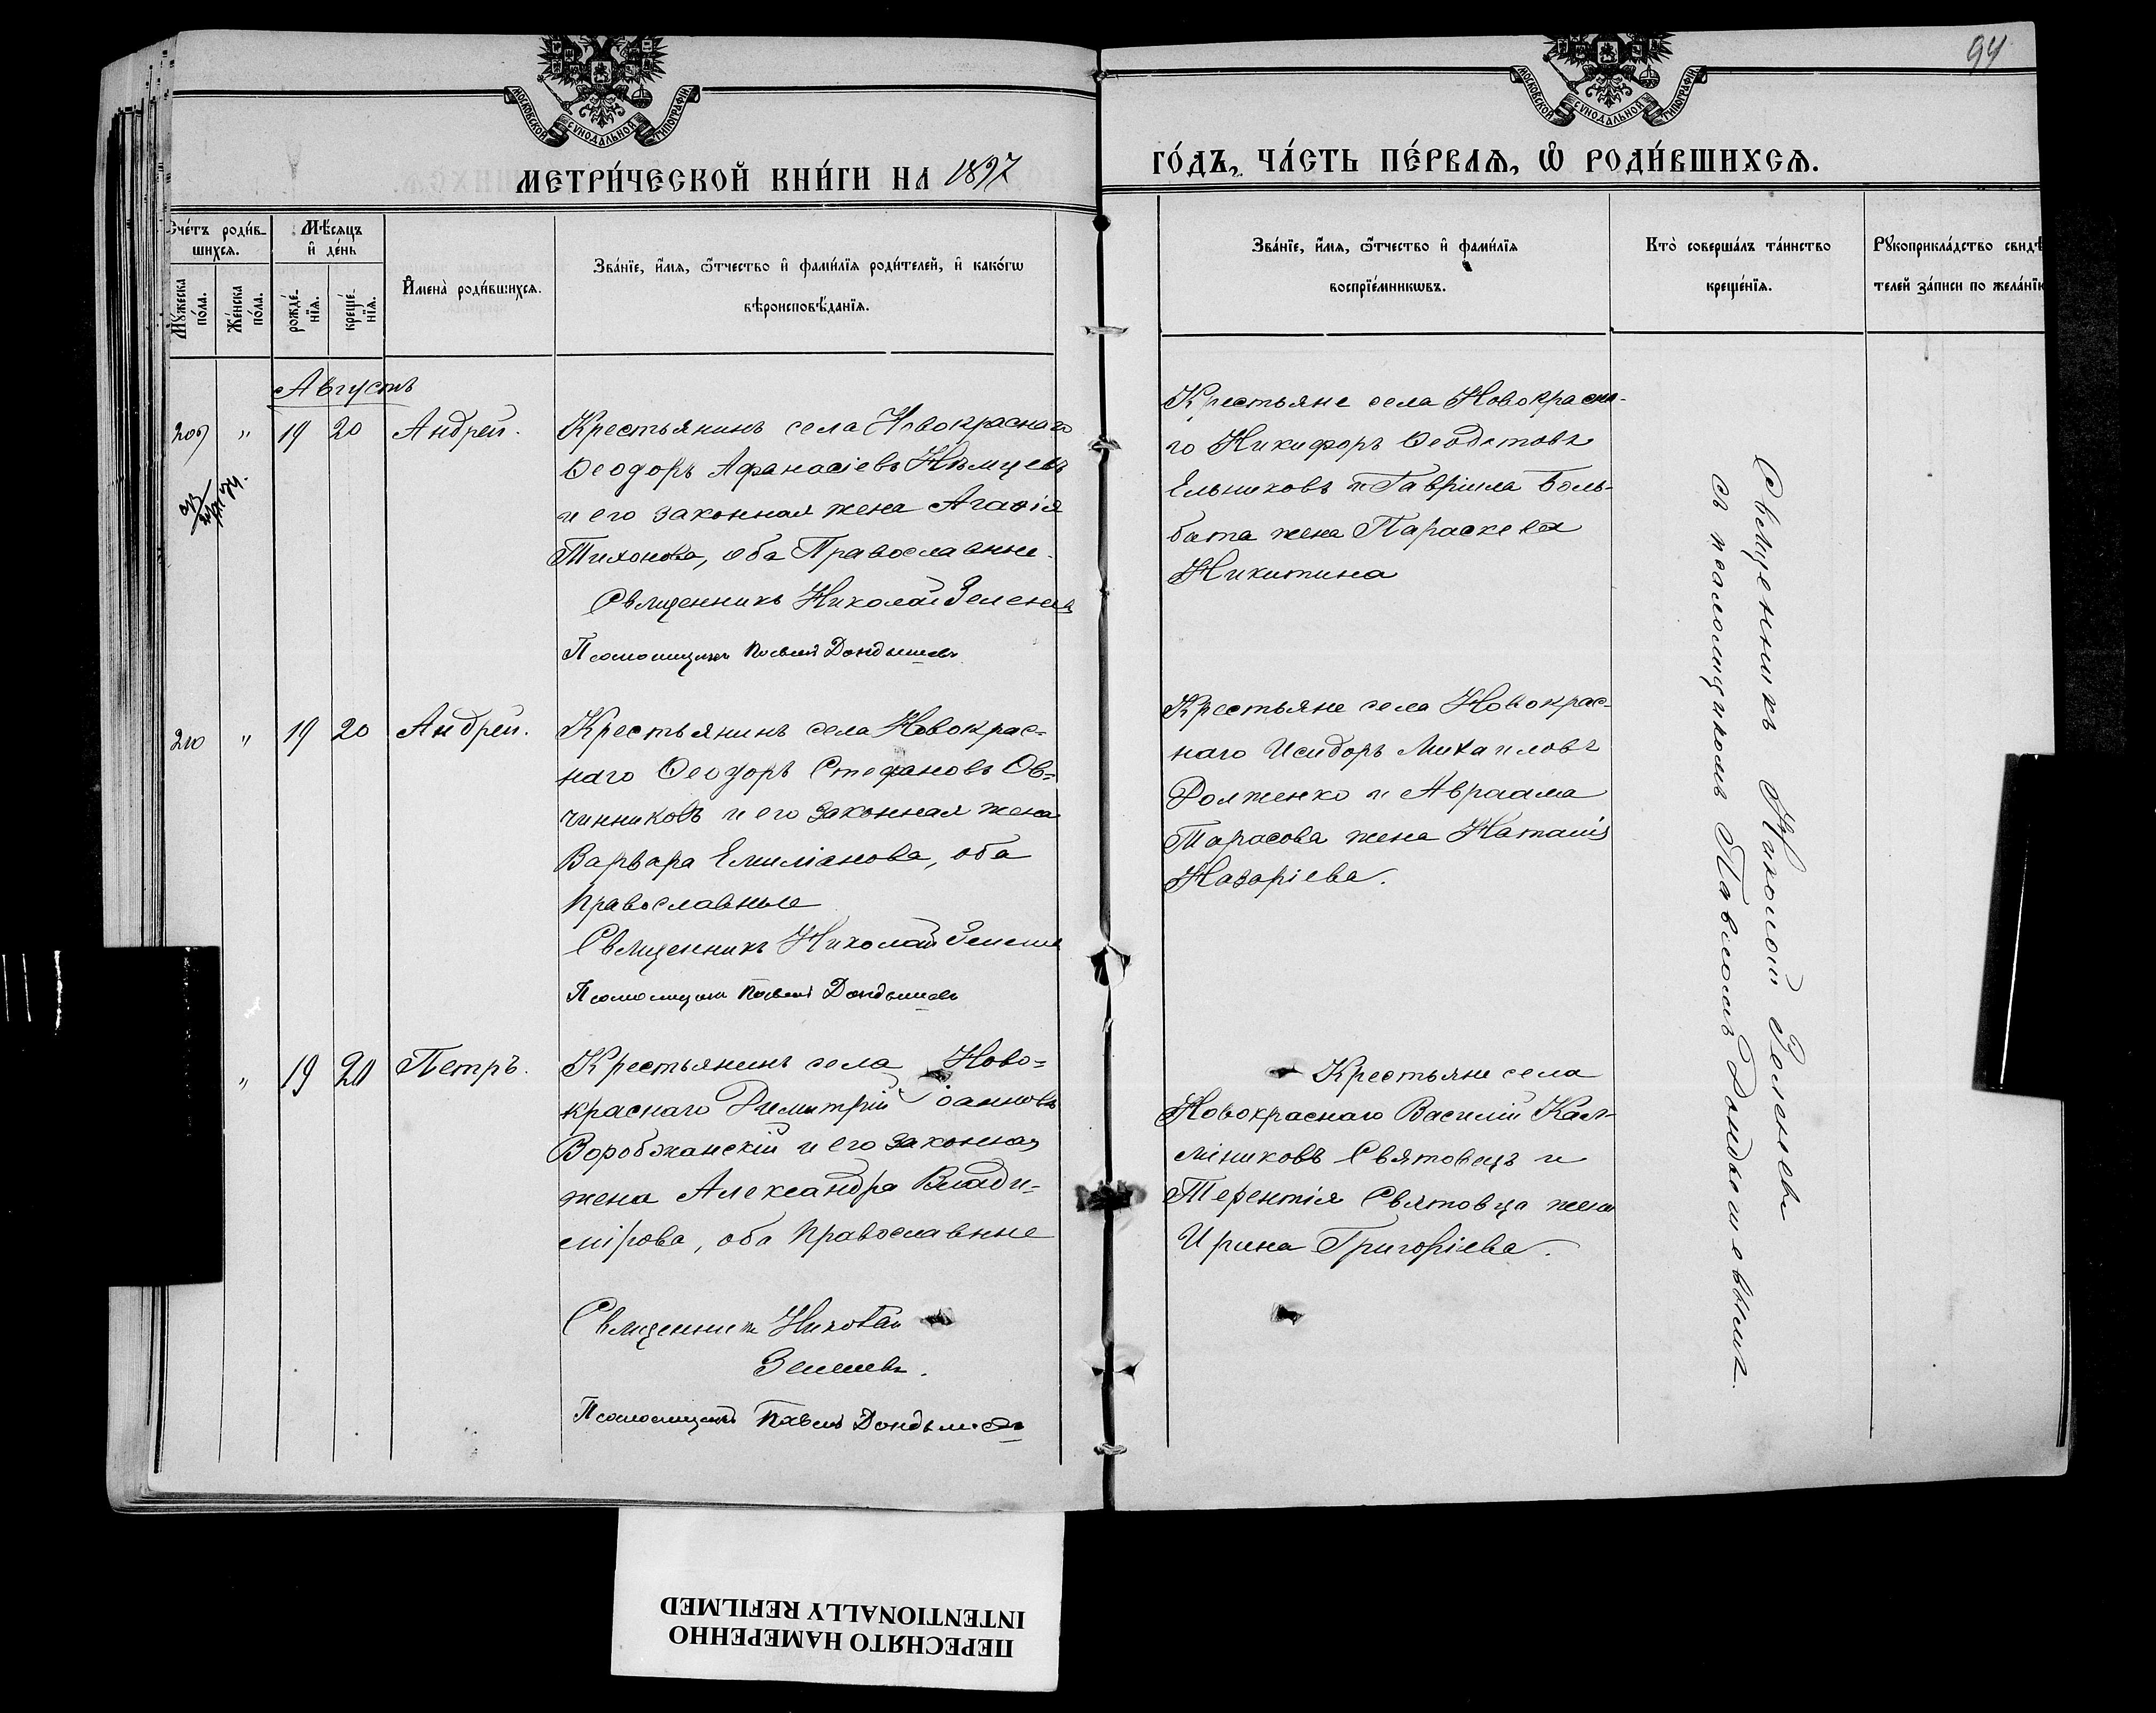 94
МОСКОВСКОЙ СУНОДАЛЬНОЙ ТИПОГРАФІИ
МОСКОВСКОЙ СУНОДАЛЬНОЙ ТИПОГРАФІИ
МЕТРИ́ЧЕСКОЙ КНИ́ГИ НА 1897
ГО́ДЪ, ЧА́СТЬ ПЕ́РВАѦ, Ѡ҆ РОДИ́ВШИХСѦ.
Сче́тъ роди́в-
шихся.
Мѣ́сяцъ
и҆ де́нь
Му́жеска
по́ла.
Же́нска
по́ла.
рожде́-
нїя.
креще́-
нїя.
И҆мена̀ роди́вшихся.
Зва́нїе, и҆́мя, ѻ҆́тчество и҆ фами́лїя роди́телей, и҆ како́гѡ
вѣроисповѣ́данїя.
Зва́нїе, и҆́мя, ѻ҆́тчество и҆ фами́лїя
воспрїе́мникѡвъ.
Кто̀ соверша́лъ та́инство
креще́нїя.
Рꙋкоприкла́дство свидѣ
телей за́писи по жела́нїю
Августъ
209 " 19 20 Андрей.
Крестьянинъ села Новокраснаго
Ѳеодоръ Афанасіевъ Нѣмцевъ
и его законная жена Агафія
Тихонова, оба Православные.
Священникъ Николай Зеленевъ
Псаломщикъ Павелъ Дондышевъ
Крестьяне села Новокрасна-
го Никифоръ Ѳеодотовъ
Ельниковъ и Гавріила Боль-
бата жена Параскева
Никитина
210 " 19 20 Андрей.
Крестьянинъ села Новокрас-
наго Ѳеодоръ Стефановъ Ов-
чинниковъ и его законная жена
Варвара Емиліанова, оба
Православные
Священникъ Николай Зеленевъ
Псаломщикъ Павелъ Дондышевъ
Крестьяне села Новокрас-
наго Исидоръ Михаиловъ
Долженко и Авраама
Тарасова жена Наталія
Назаріева.
" 19 20 Петръ.
Крестьянинъ села Ново-
краснаго Димитрій Іоанновъ
Воробжанскій и его законная
жена Александра Влади-
мірова, оба Православные
Священникъ Николай
Зеленевъ.
Псаломщикъ Павелъ Дондышевъ
Крестьяне села
Новокраснаго Василій
Святовецъ и
Терентія Святовца жена
Ирина Григоріева.
Священникъ Николай Зеленевъ
съ псаломщикомъ Павломъ Дондышевымъ.
ПЕРЕСНЯТО НАМЕРЕННО
INTENTIONALLY REFILMED